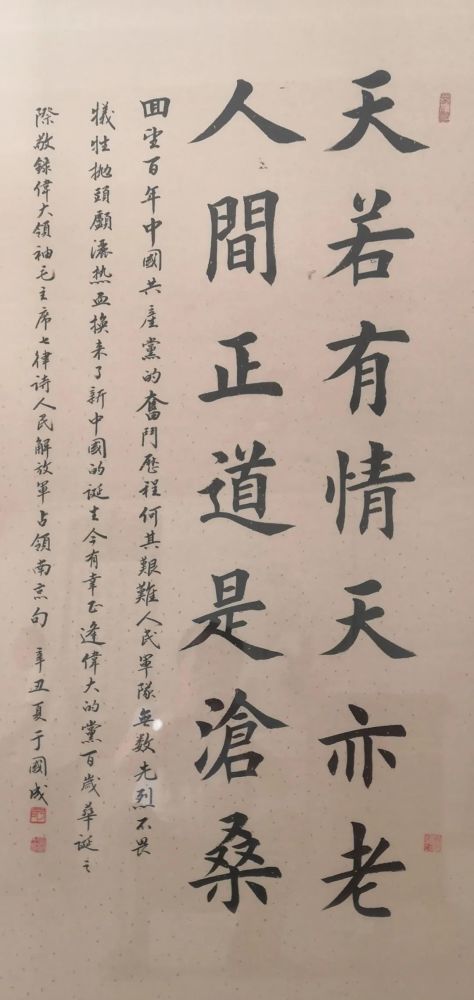 天若有情天亦老
人間正道是滄桑
回望百年中國共產黨的奮鬥歷程何其艱難人民軍隊無数先烈不畏
犧牲抛頭顱灑热血换来了新中國的诞生今有幸正逢偉大的黨百歲華诞之
際敬錄偉大領袖毛主席七律诗人民解放軍占領南京句 辛丑夏于國成